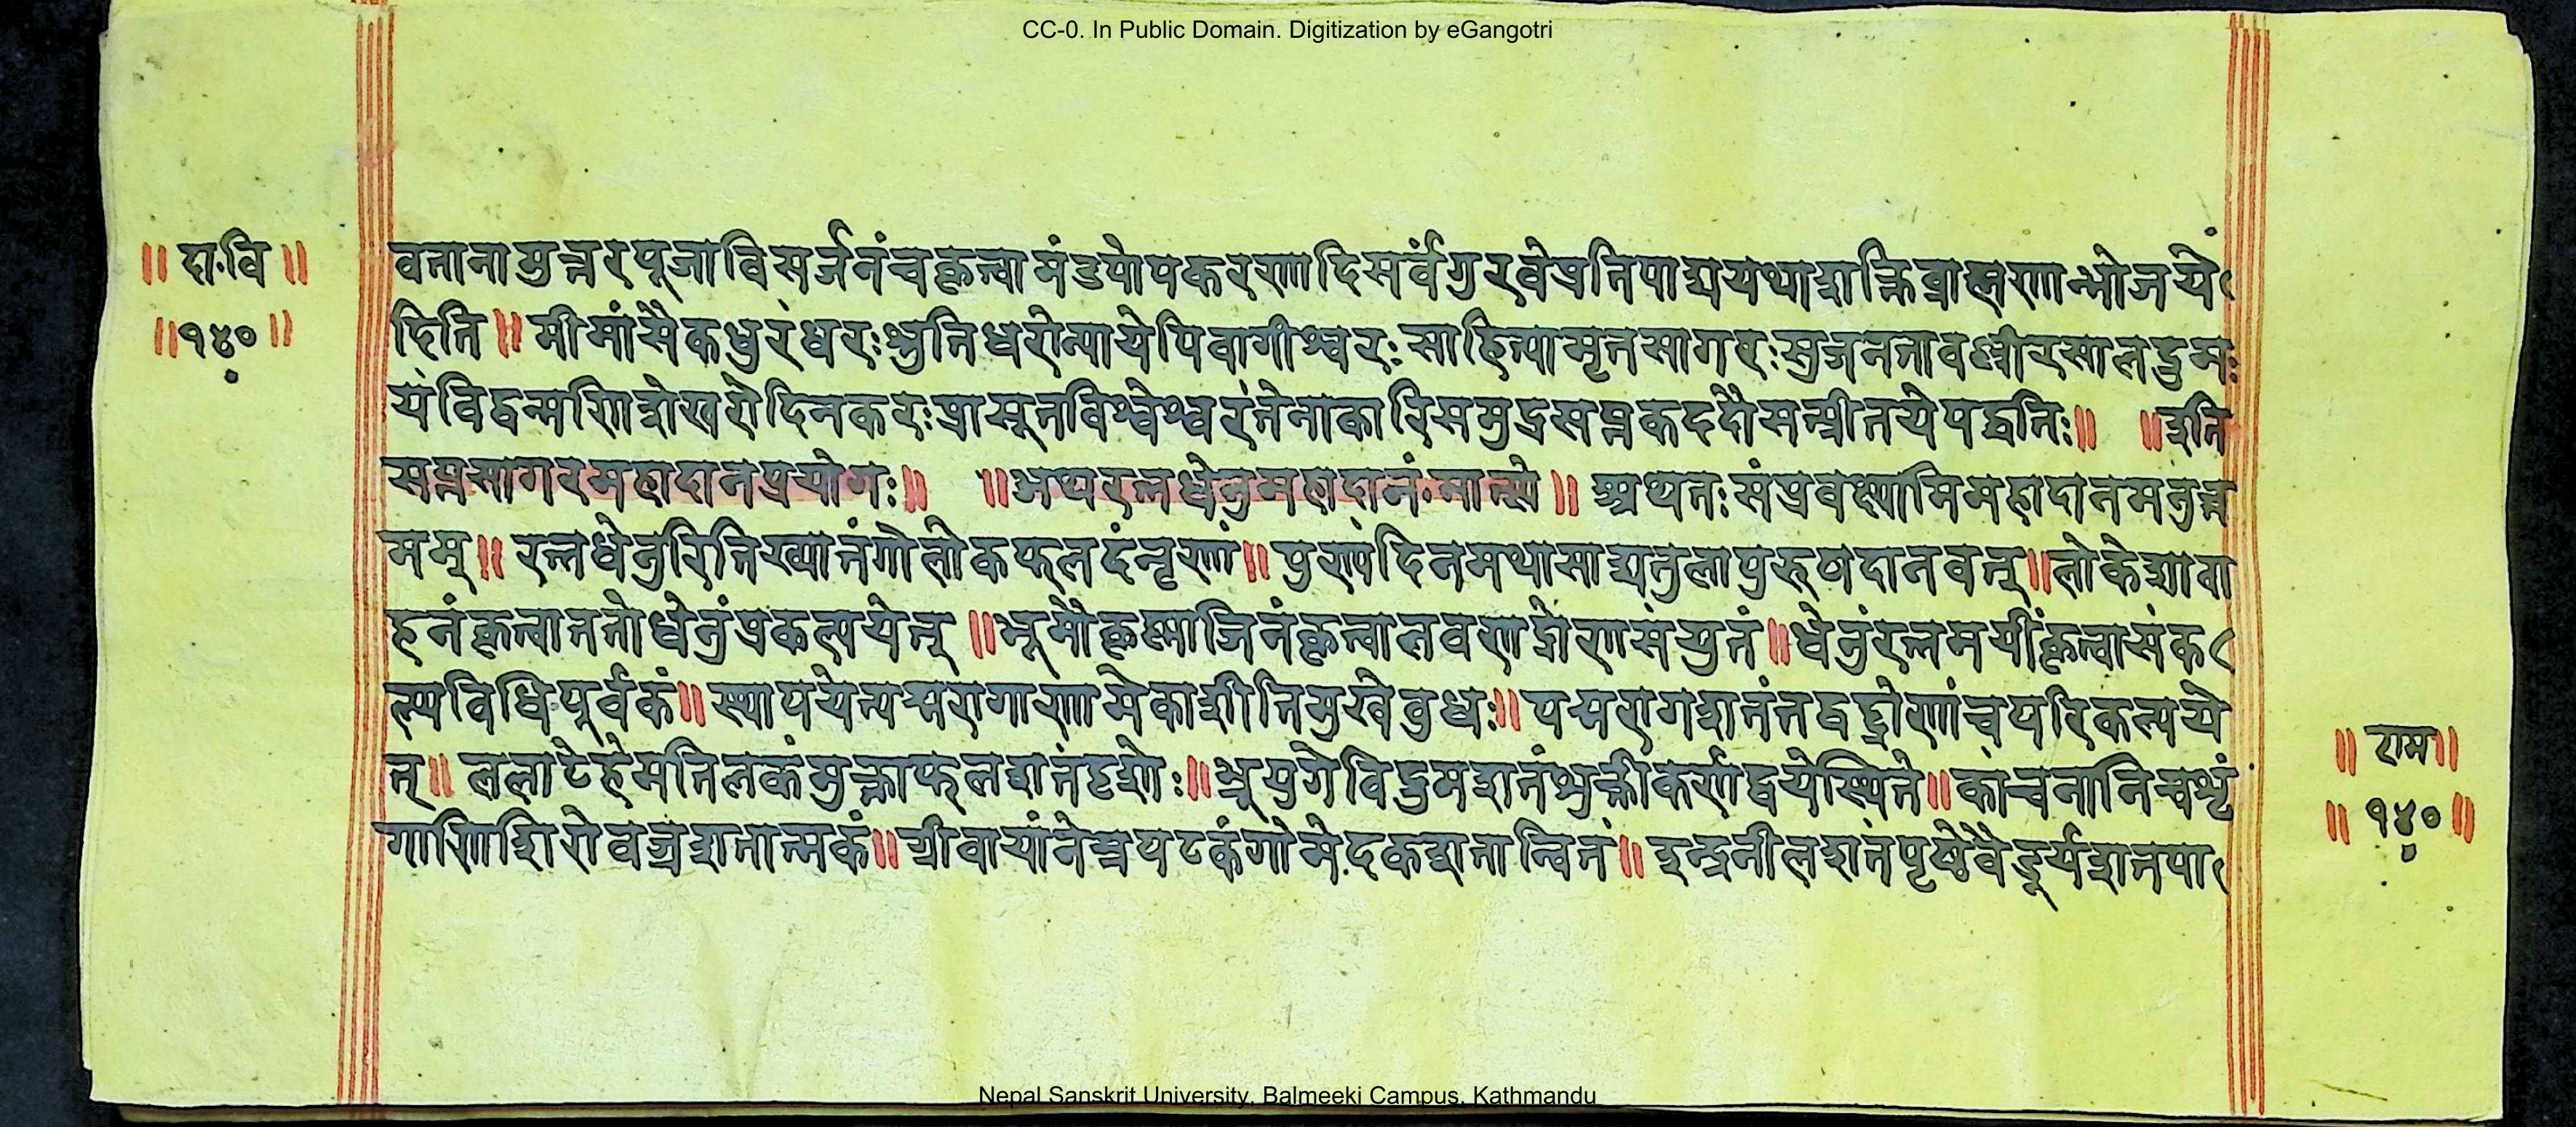 CC-0. In Public Domain. Digitization by eGangotri
॥ दा॰वि ॥
॥१४०॥
वतानामुत्तरपूजाविसर्जनंचकृत्वामंडपोपकरणादिसर्वंगुरवेप्रतिपाद्ययथाशक्तिब्राह्मणान्भोजये
दिति॥ मीमांसैकधुरंधरःश्रुतिधरोन्यायेपिवागीश्वरःसाहित्यामृतसागरःसुजनतावल्लीरसालद्रुमः
यंविद्वन्मणिशेखरोदिनकरःप्रासूतविश्वेश्वरंतेनाकारिसमुद्रसप्तकददौसन्प्रीतयेपद्धतिः॥ ॥इति
सप्तसागरमहादानप्रयोगः॥ ॥अथरत्नधेनुमहादानं॰मात्स्ये॥ अथातःसंप्रवक्ष्यामिमहादानमनुत्त
मम्॥ रत्नधेनुरितिख्यातंगोलोकफलदंनृणां॥ पुण्यंदिनमथासाद्यतुलापुरुषदानवत्॥लोकेशावा
हनंकृत्वाततोधेनुंप्रकल्पयेत्॥भूमौकृष्णाजिनंकृत्वालवणद्रोणसंयुतं॥धेनुंरत्नमयींकृत्वासंक
ल्पविधिपूर्वकं॥स्थापयेत्पद्मरागाणामेकाशीतिमुखेबुधः॥पद्मरागशतंतद्वद्घोणांचपरिकल्पये
त्॥ ललाटेहेमतिलकंमुक्ताफलशतंदृशोः॥भ्रूयुगेविद्रुमशतंशुक्तीकर्णद्वयेस्थिते॥कांचनानिचशृं
गाणिशिरोवज्रशतात्मकं॥ग्रीवायांनेत्रपटकंगोमेदकशतान्वितं॥ इन्द्रनीलशतंपृष्ठेवैडूर्यशतपा
॥ राम॥
॥ १४०॥
Nepal Sanskrit University, Balmeeki Campus, Kathmandu